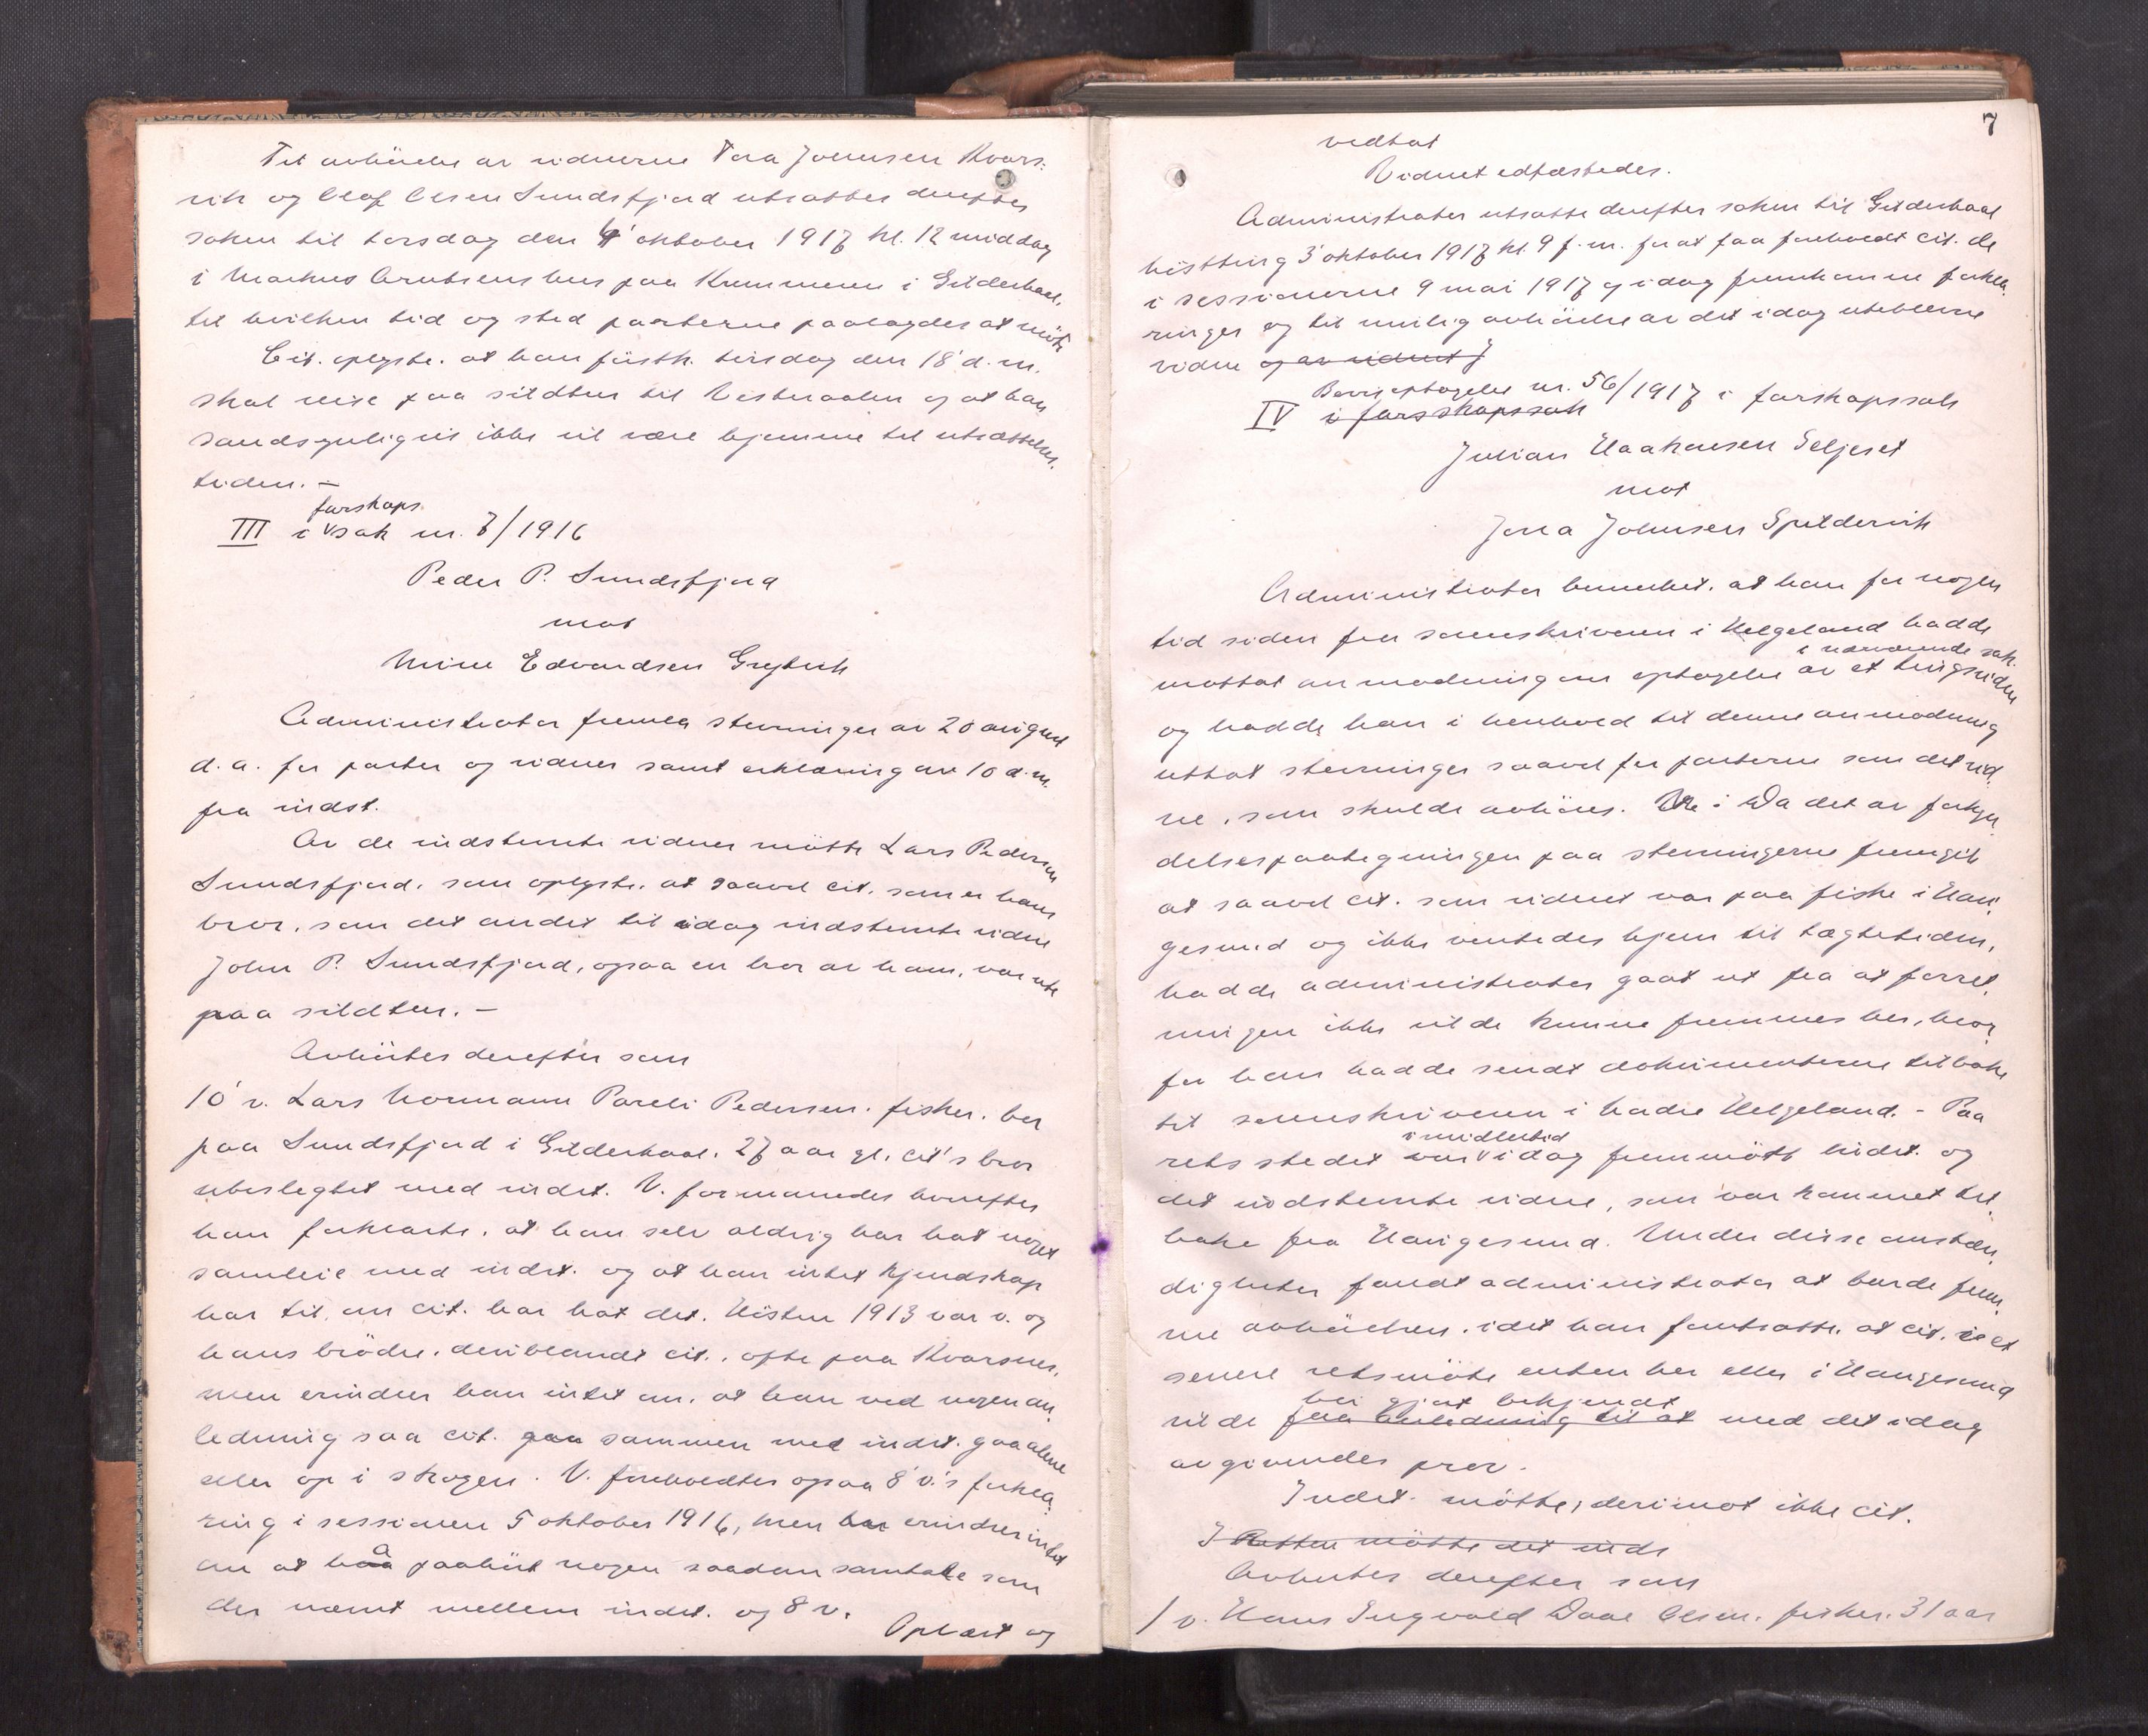 Til avhörelse av vidnerne Tora Johnsen Kvars-
vik og Olaf Olsen Sundsfjord utsattes derefter
saken til torsdag den 4' oktober 1917 kl. 12 middag
i Markus Arntsens hus paa Kummeren i Gildeskaal,
til hvilken tid og sted parterne paalagdes at möte
Cit. oplyste, at han förstk. tirsdag den 18' d.m.
skal reise paa sildtur til Vesteraalen og at han
sandsynligvis ikke vil være hjemme til utsættelses-
tiden. –
farskaps
III i sak nr. 7/1916
Peder P. Sundsfjord
mot
Mine Edvardsen Grytvik
Administrator fremla stevninger av 20 august
d.a. for parter og vidner samt erklæring av 10 d.m.
fra indst.
Av de indstevnte vidner mötte Lars Pedersen
Sundsfjord, som oplyste, at saavel cit. som er hans
bror, som det andet til idag indstevnte vidne
John P. Sundsfjord, ogsaa en bror av ham, var ute
paa sildtur. –
Avhörtes derefter som
10' v. Lars Normann Pareli Pedersen, fisker, bor
paa Sundsfjord i Gildeskaal, 27 aar gl. cit's bror
ubeslegtet med indst. V. formanedes hvorefter
han forklarte, at han selv aldrig har hat noget
samleie med indst. og at han intet kjendskap
har til, om cit. har hat det. Hösten 1913 var v. og
hans brödre, deriblandt cit., ofte paa Kvarsnes,
men erindrer han intet om, at han ved nogen an-
ledning saa cit. gaa sammen med indst. gaa alene
eller op i skogen. V. foreholdtes ogsaa 8' v.'s forkla-
ring i sessionen 5 oktober 1916, men han erindrer intet
om at ha paahört nogen saadan samtale som
der nævnt mellem indst. og 8 v.
Oplæst og
7
vedtat
Vidnet edfæstedes.
Administrator utsatte derefter saken til Gildeskaal
höstting 3' oktober 1917 kl. 9 f.m. for at faa foreholdt cit. de
i sessionerne 9 mai 1917 og idag fremkomne forkla-
ringer og til mulig avhörelse av det idag uteblevne
vidne og av vidnet J
Bevisoptagelse nr. 56/1917 i farskapssak
IV i farsskapssak
Julian Haakonsen Seljeset
mot
Jora Johnsen Spildervik
Administrator bemerket, at han for nogen
tid siden fra sorenskriveren i Helgeland hadde
i nærværende sak
mottat anmodning om optagelse av et tingsvidne
og hadde han i henhold til denne anmodning
uttat stevninger saavel for parterne som det vid-
ne, som skulde avhöres. Da det av forkyn-
delsespaategningen paa stevningerne fremgik
at saavel cit. som vidnet var paa fiske i Hau-
gesund og ikke ventedes hjem til tægtetiden,
hadde administrator gaat ut fra at forret-
ningen ikke vilde kunne fremmes her, hvor-
for han hadde sendt dokumenterne tilbake
til sorenskriveren i Nadre Helgeland. – Paa
imidlertid
retsstedet var idag fremmött indst. og
det indstevnte vidne, som var kommet til-
bake fra Haugesund. Under disse omstæn-
digheter fandt administrator at burde frem-
me avhörelsen, idet han forutsatte, at cit. i et
senere retsmöte enten her eller i Haugesund
bli gjort bekjendt
vilde faa anledning til at med det idag
avgivendes prov.
Indst. mötte, derimot ikke cit.
I Retten mötte det inds
Avhörtes derefter som
1 v. Hans Ingvald Daae Olsen, fisker, 31 aar